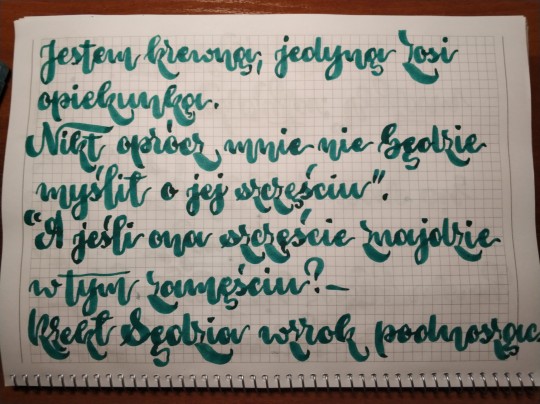 Jestem krewną, jedyną Zosi
opiekunką.
Nikt oprócz mnie nie będzie
myślił o jej szczęściu".
"A jeśli ona szczęście znajdzie
w tym zamęściu?—
Rzekł Sędzia wzrok podnosząc